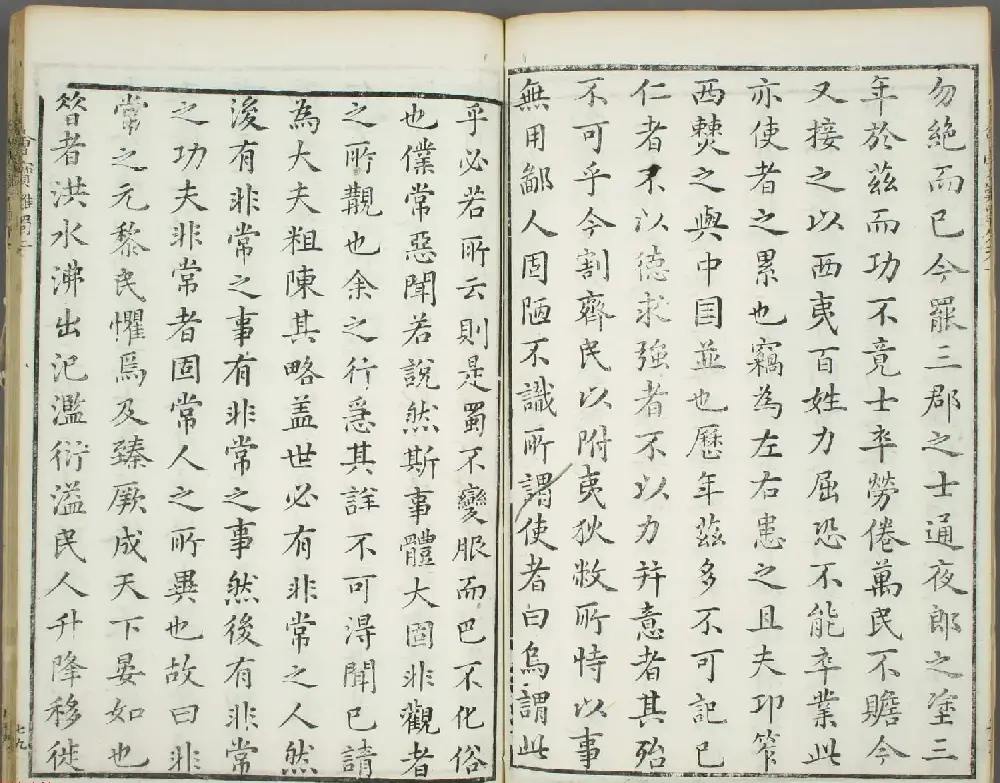 勿絶而已今罷三郡之士通夜郎之塗三
年於茲而功不竟士卒勞倦萬民不贍今
又接之以西夷百姓力屈恐不能卒業此
亦使者之累也竊為左右患之且夫邛笮
西僰之與中国並也歷年茲多不可記已
仁者不以德求強者不以力并意者其殆
不可乎今割齊民以附夷狄敝所恃以事
無用鄙人固陋不識所謂使者曰烏謂此
乎必若所云則是蜀不變服而巴不化俗
也僕常惡聞若說然斯事體大固非觀者
之所覯也余之行急其詳不可得聞已請
為大夫粗陳其略盖世必有非常之人然
後有非常之事有非常之事然後有非常
之功夫非常者固常人之所異也故曰非
常之元黎民懼焉及臻厥成天下晏如也
昔者洪水沸出氾濫衍溢民人升降移徙